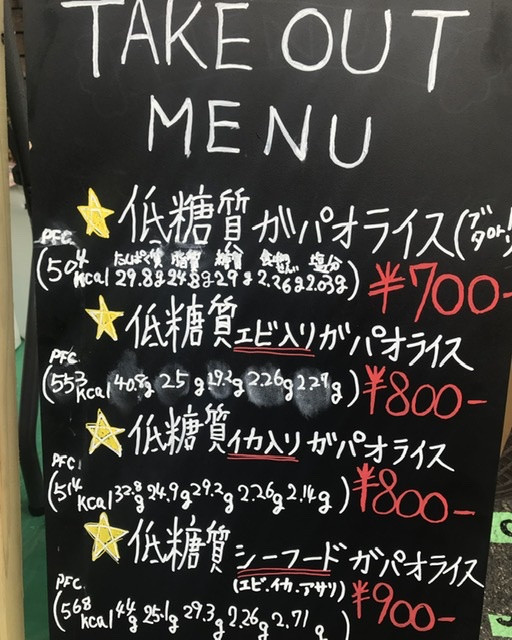 TAKE OUT
MENU
☆低糖質ガパオライス(ブタ
PFC たんぱく質 脂質 糖質 食物せんい 塩分
(504kcal 29.8g 24.8g 29g 2.26g 2.03g) ¥700-
☆低糖質エビ入りガパオライス
PFC
(553kcal 40.8g 25g 29.2g 2.26g 2.29g) ¥800-
☆低糖質イカ入りガパオライス
PFC
(514kcal 32.8g 24.9g 29.2g 2.26g 2.14g) ¥800-
☆低糖質シーフードガパオライス
(エビ.イカ.アサリ)
PFC
(568kcal 44g 25.1g 29.3g 2.26g 2.71g) ¥900-